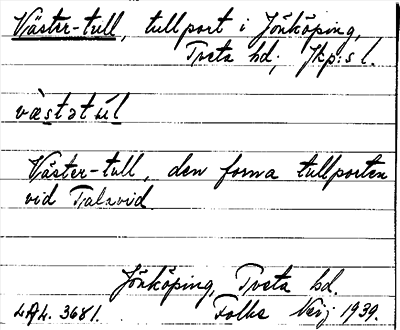 Väster-tull, tullport i Jönköping,
Tveta hd; Jkp:s l.
væ̀stətúl
Väster-tull, den forna tullporten
vid Talavid.
Jönköping, Tveta hd.
LAL. 3681.
Folke 1939.